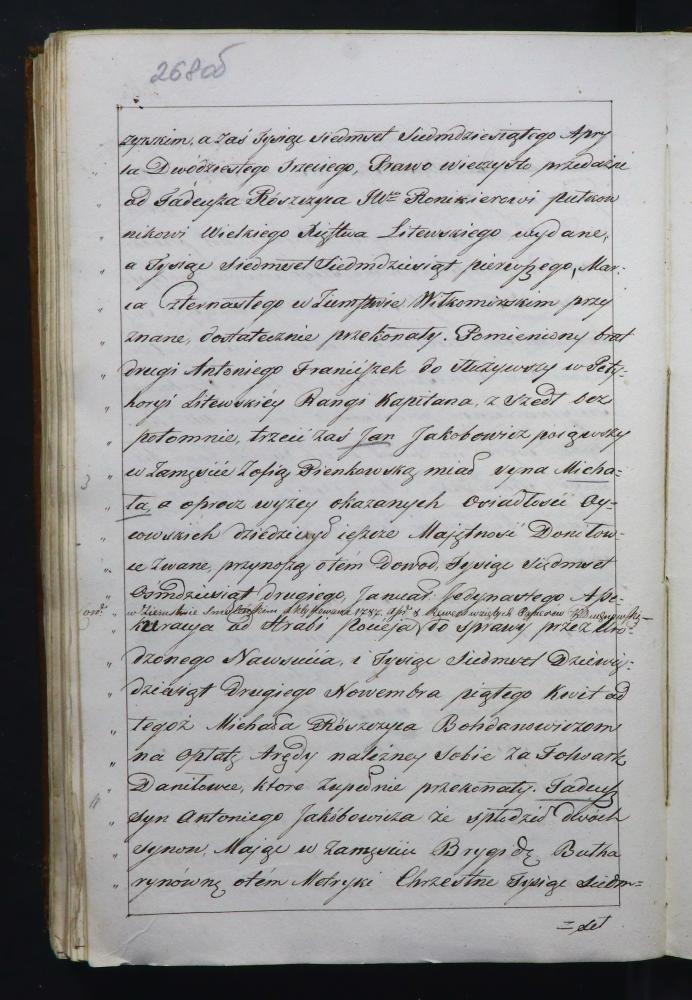 268 об
rzyńskim, a zaś Tysiąc siedmset Siedmdziesiątego Apry
la Dwódziestego Trzeciego, Prawo wieczysto przedażne
od Tadeusza Rószczyca JWu Ronikierowi pułkow
nikowi Wielkiego Xięstwa Litewskiego wydane,
a Tysiąc Siedmset Siedmdziesiąt pierwszego, Mar-
ca Czternastego w Ziemstwie Wiłkomirskim przy
znane, dostatecznie przekonały. Pomieniony brat
drugi Antoniego Franciszek do służywszy w Pety-
horyi Litewskiéy Rangi Kapitana, z szedł bez
potomnie, trzeci zaś Jan Jakóbowicz poiąwszy
w Zamęście Zofią Pienkowską miał syna Micha-
ła, a oprócz wyżey okazanych Osiadłości Oy-
cowskich dziedziczył ieszcze Majętność Daniłow-
ce Zwane, przynoszą otém Dowod, Tysiąc Siedmset
Osmdziesiąt drugiego, Januar. Jedynastego Asse-
w Ziemstwie 1782, Apr. 8
kuracya od Hrabi Pocieja to sprawy przez Uro-
dzonego Nawsucia, i Tysiąc Siedmset Dziewię-
dziesiąt drugiego Nowembra piątego Kwit od
tegoż Michała Rószczyca Bohdanowiczom
na opłatę Arędy należney sobie za Folwark
Daniłowce, ktore zupełnie przekonały. Tadeusz
syn Antoniego Jakóbowicza że spłodził dwóch
synow, Mając w Zamęściu Brygidę Butka
rynównę otém Metryki Chrzestne Tysiąc Siedm=
=set